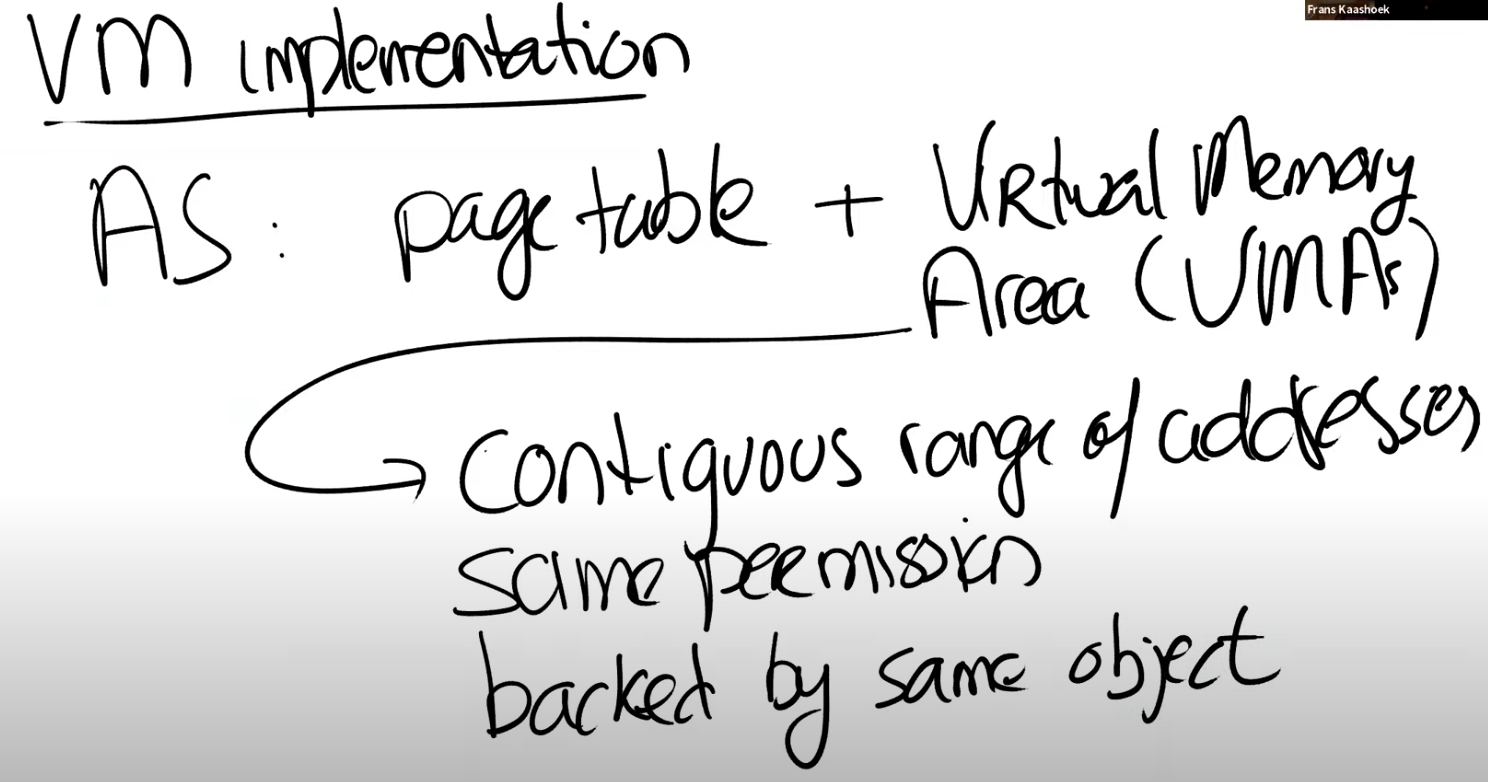 Frans Kaashoek
VM implementation
AS: page table + Virtual Memory
Area (VMAs)
contiguous range of addresses
same permission
backed by same object